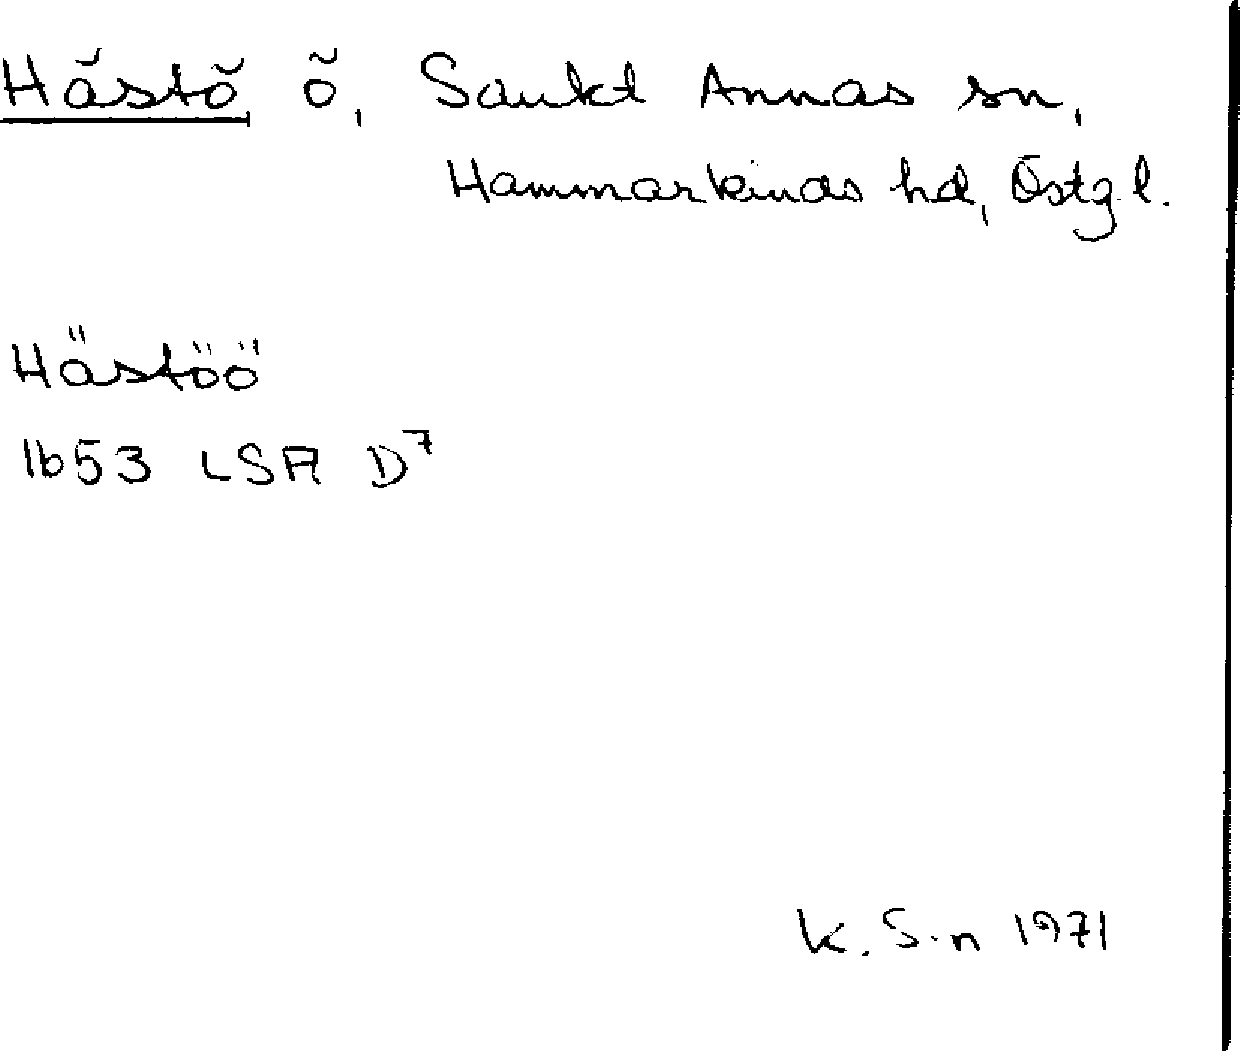 Hästö, ö, Sankt Annas sn,
Hammarkinds hd, Östg.l.
Hästöö
1653 LSA D⁷
K. S-n 1971